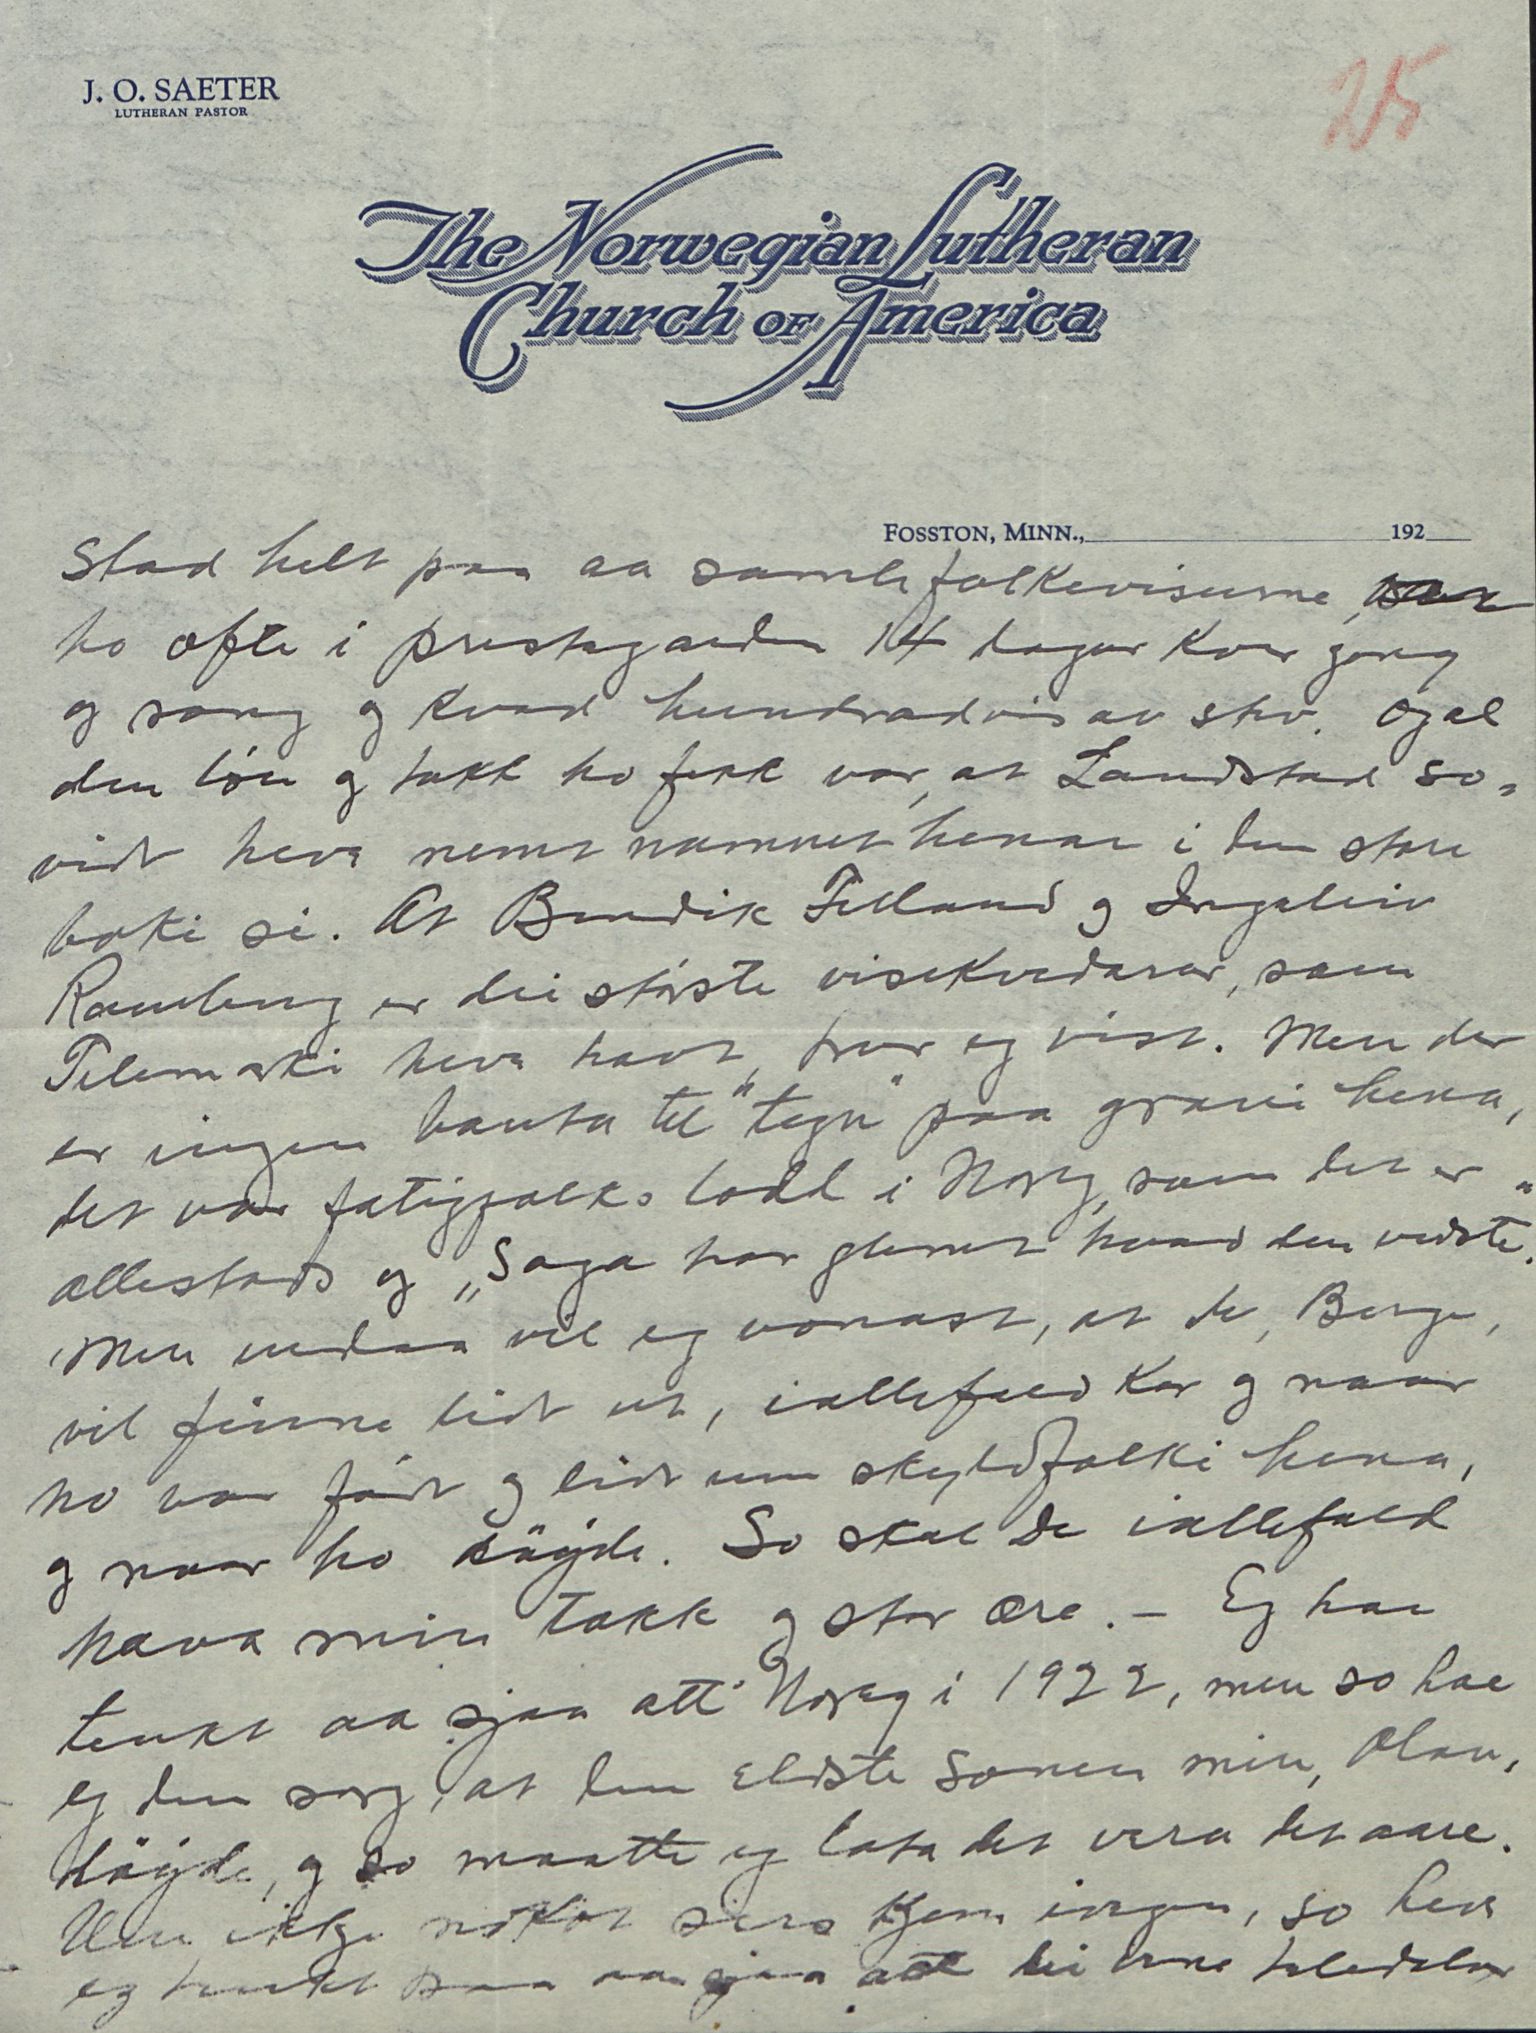 J. O. SAETER
LUTHERAN PASTOR
25
The Norwegian Lutheran
Church OF America
FOSSTON, MINN., 192
Stad helt paa aa samle folkevisurne,
ho ofte i prestegarden 14 dagar kver gong
og song og kvad hundradvis av stev. Og al
den løn og takk ho fekk var, at Landstad so-
vidt heve nemt namnet hennar i den store
boki si. At Bendik Felland og Ingeleiv
Ramberg er dei største visekvedarar, som
Telemarki heve havt, trur eg visst. Men der
er ingen bauta til "tegn" paa gravi henna,
det var fatigfolks lodd i Noreg, som det er
allestads og „Saga har glemt hvad den vidste."
Men endaa vil eg vonast, at de, Berge,
vil finne lidt ut, iallefald kor og naar
ho var født og lidt um skyldfolki henna,
og naar ho døyde. So skal De iallefald
hava min takk og stor ære. – Eg hae
tenkt aa sjaa att Noreg i 1922, men so hae
eg den sorg, at den eldste sonen min, Olav,
døyde, og so maatte eg lata det vera det aare.
Um ikkje nokot sers kjem ivegen, so heve
eg tenkt paa aa sjaa att dei teledølar